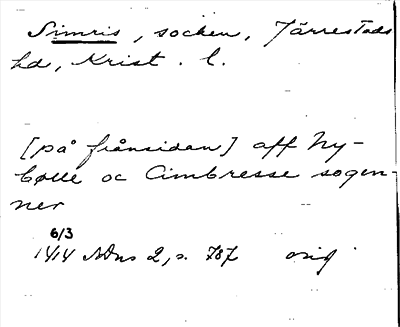 Simris, socken, Järrestads
hd, Krist. l.
[på frånsidan] aff Ny-
bølle oc Cimbresse sogen-
ner
6/3
1414 ADns 2, s. 787 orig